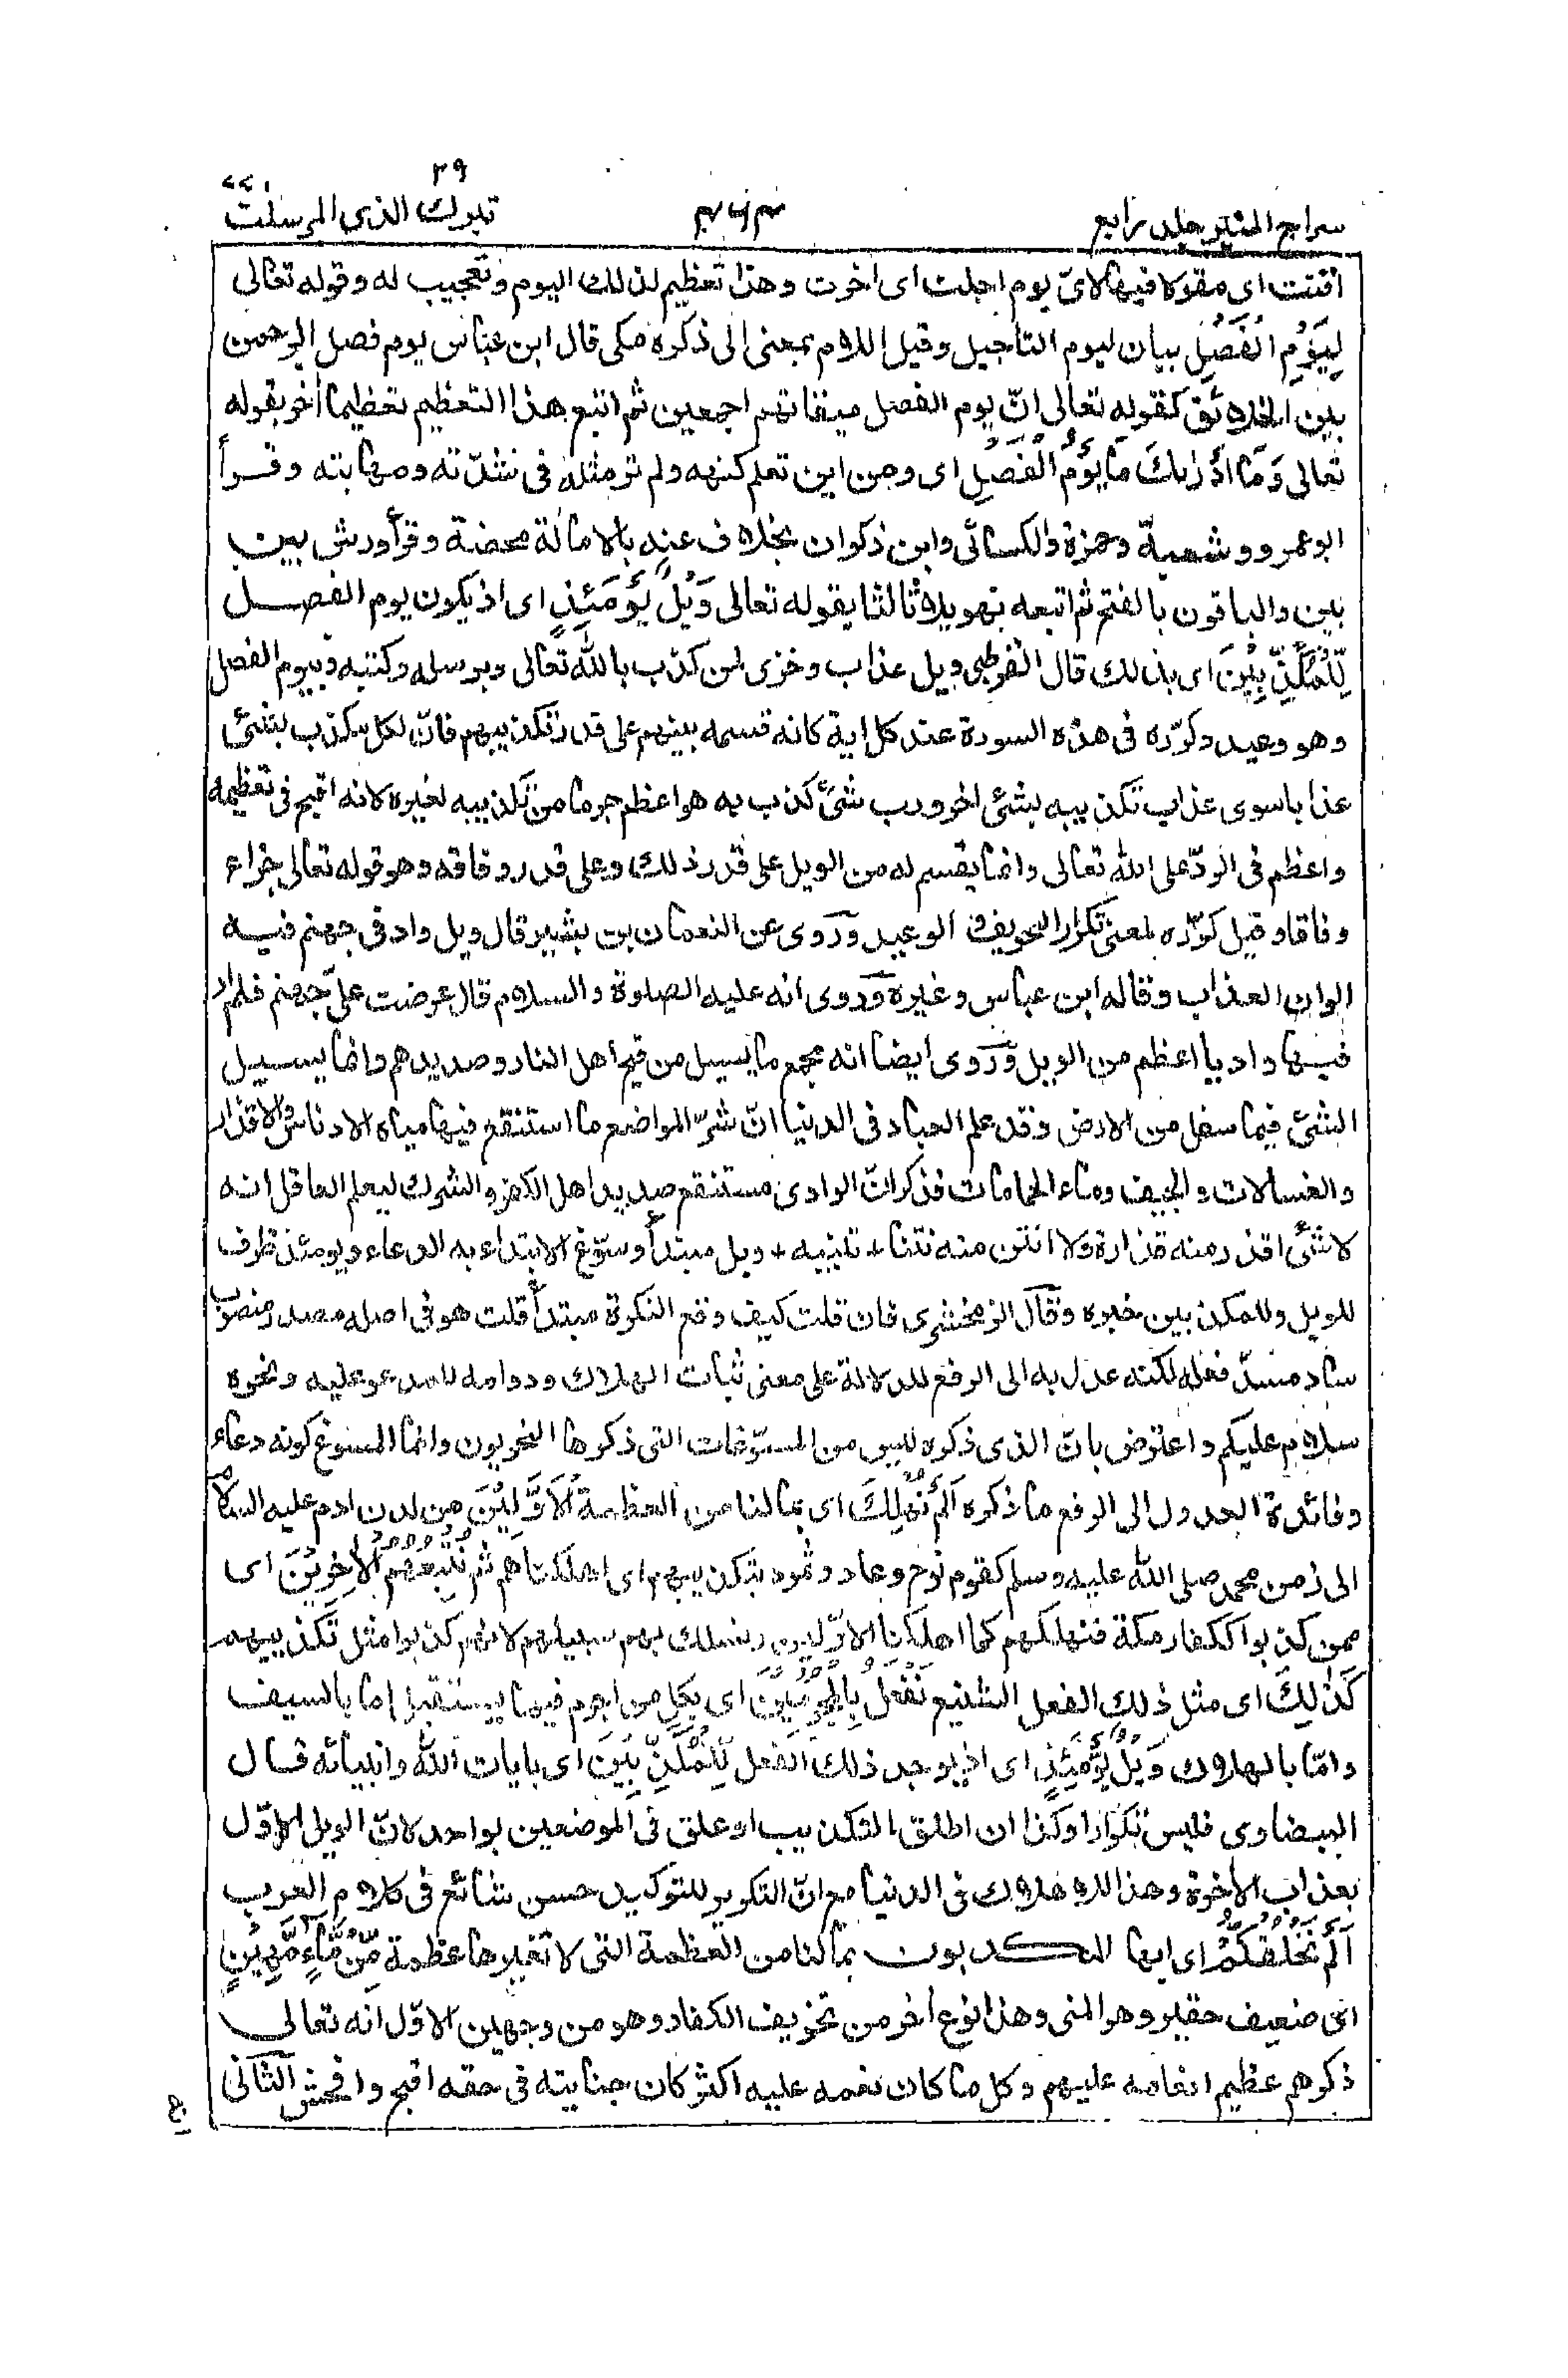 ٢٩
٧٧
سراج المنير جلد رابع
٤٦٤
تبرك الذى المرسلت
اقتت اى مقولا فيها لاىّ يوم اجلت اى اخرت وهذا تعظيم لذلك اليوم وتعجيب له وقوله تعالى
لِيَوْمِ الْفَصْلِ بيان ليوم التاجيل وقيل اللام بمعنى الى ذكره مكى قال ابن عباس يوم فصل الرحمن
بين الخلائق كقوله تعالى انّ يوم الفصل ميقاتهم اجمعين ثم اتبع هذا التعظيم تعظيما أخر بقوله
تعالى وَمَا اَدْرٰىكَ مَا يَوْمُ الْفَصْلِ اى ومن اين تعلم كنهه ولم تر مثله فى شدّته ومهابته وقرأ
ابو عمرو وشعبة وحمزة والكسائى وابن ذكوان بخلاف عنه بالامالة محضة وقرأ ورش بين
بين والباقون بالفتح ثم اتبعه تهويلا ثالثا بقوله تعالى وَيْلٌ يَوْمَئِذٍ اى اذ يكون يوم الفصل
لِّلْمُكَذِّبِيْنَ اى بذلك قال القرطبى ويل عذاب وخزى لمن كذب بالله تعالى وبرسله وكتبه وبيوم الفصل
وهو وعيد وكرّره فى هذه السورة عند كل اية كانه قسمه بينهم على قدر تكذيبهم فانّ لكل مكذب بشئ
عذابا سوى عذاب تكذيبه بشئ اخر ورب شئ كذب به هو اعظم جرما من تكذيبه لغيره لانه اقبح فى تعظيمه
واعظم فى الردّ على الله تعالى وانما يقسم له من الويل على قدر ذلك وعلى قدر وفاقه وهو قوله تعالى جزاء
وفاقا وقيل كرّره لمعنى تكرار التخويف الوعيد وروى عن النعمان بن بشير قال ويل واد فى جهنم فيه
الوان العذاب وقاله ابن عباس وغيره وروى انه عليه الصلوة والسلام قال عرضت علىّ جهنم فلم ار
فيها واديا اعظم من الويل وروى ايضا انه مجمع ما يسيل من قيح اهل النار وصديدهم وانما يسيل
الشئ فيما سفل من الارض وقد علم العباد فى الدنيا انّ شرّ المواضع ما استنقع فيها مياه الادناس والاقذار
والغسالات والجيف وماء الحمامات فذكر انّ الوادى مستنقع صديد اهل الكفر والشرك ليعلم العاقل انه
لا شئ اقذر منه قذارة ولا انتن منه نتنا + تنبيه + ويل مبتدأ وسوّغ الابتداء به الدعاء ويومئذ ظرف
للويل وللمكذبين خبره وقال الزمخشرى فان قلت كيف وقع النكرة مبتدأ قلت هو فى اصله مصدر منصوب
ساد مسدّ فعله لكنه عدل به الى الرفع للدلالة على معنى ثبات الهلاك ودوامه للمدعو عليه ونحوه
سلام عليكم واعترض بانّ الذى ذكره ليس من المسوّغات التى ذكرها النحويون وانما المسوغ كونه دعاء
وفائدة العدول الى الرفع ما ذكره اَلَمْ نُهْلِكِ اى بما لنا من العظمة الْاَوَّلِيْنَ من لدن ادم عليه السلام
الى زمن محمد صلى الله عليه وسلم كقوم نوح وعاد وثمود بتكذيبهم اى اهلكناهم ثُمَّ نُتْبِعُهُمُ الْاٰخِرِيْنَ اى
ممن كذبوا ككفار مكة فنهلكهم كما اهلكنا الاوّلين ونسلك بهم سبيلهم لانهم كذبوا مثل تكذيبهم
كَذٰلِكَ اى مثل ذلك الفعل الشنيع نَفْعَلُ بِالْمُجْرِمِيْنَ اى بكل من اجرم فيما يستقبل إما بالسيف
وامّا بالهلاك وَيْلٌ يَّوْمَئِذٍ اى اذ يوجد ذلك الفعل لِّلْمُكَذِّبِيْنَ اى بايات الله وانبيائه قال
البيضاوى فليس تكرارا وكذا ان اطلق التكذيب او علق فى الموضعين بواحد لانّ الويل الاوّل
بعذاب الأخرة وهذا للاهلاك فى الدنيا مع انّ التكرير للتوكيد حسن شائع فى كلام العرب
اَلَمْ نَخْلُقْكُّمْ اى ايها المكذبون بما لنا من العظمة التى لا تعيرها عظمة مِّنْ مَّآءٍ مَّهِيْنٍ
اى ضعيف حقير وهو المنى وهذا نوع أخر من تخويف الكفار وهو من وجهين الاوّل انه تعالى
ذكرهم عظيم انعامه عليهم وكل ما كان نعمه عليه اكثر كان جنايته فى حقه اقبح وافحش الثانى